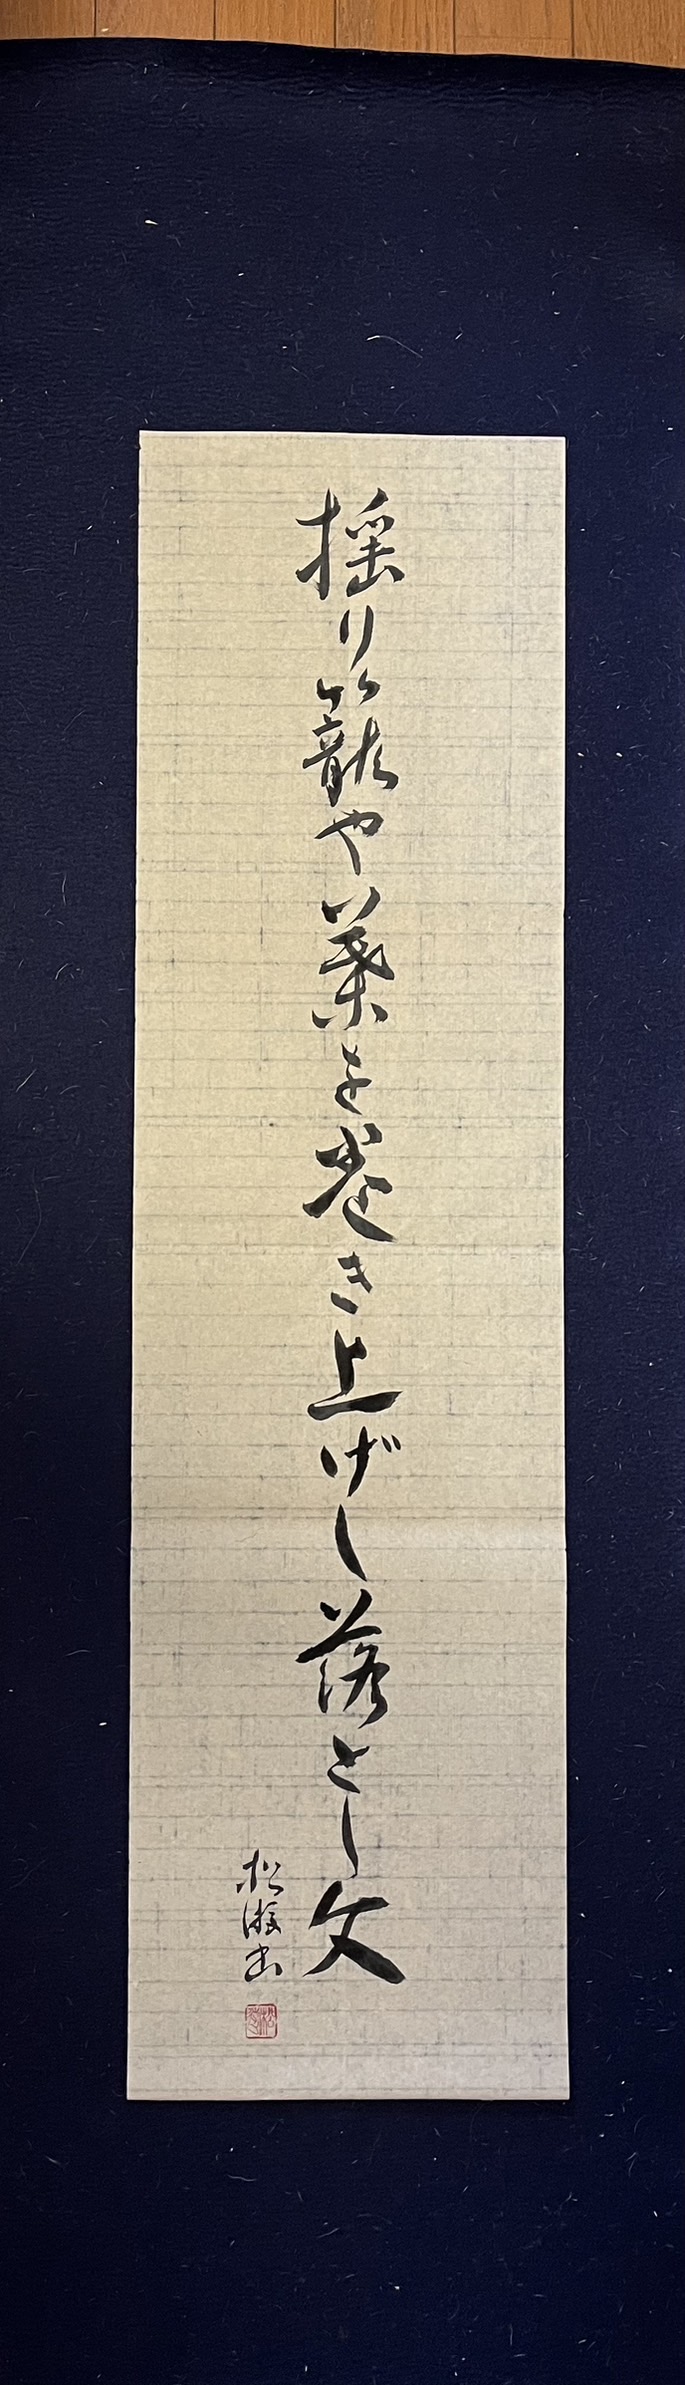 揺り籠や葉を巻き上げし落とし文
松濤書